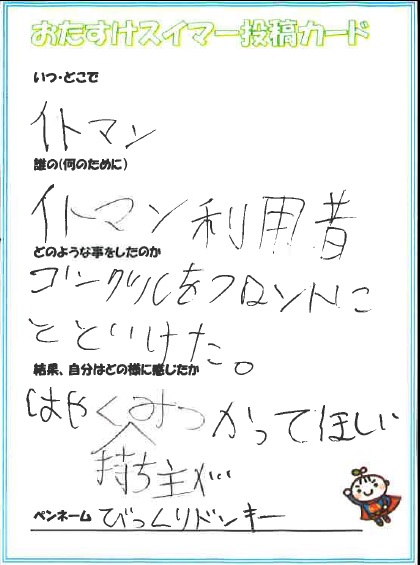 おたすけスイマー投稿カード
いつ・どこで
イトマン
誰の(何のために)
イトマン利用者
どのような事をしたのか
ゴーグルをフロントに
とどけた。
結果、自分はどの様に感じたか
はやくみつかってほしい
持ち主が
ペンネーム びっくりドンキー